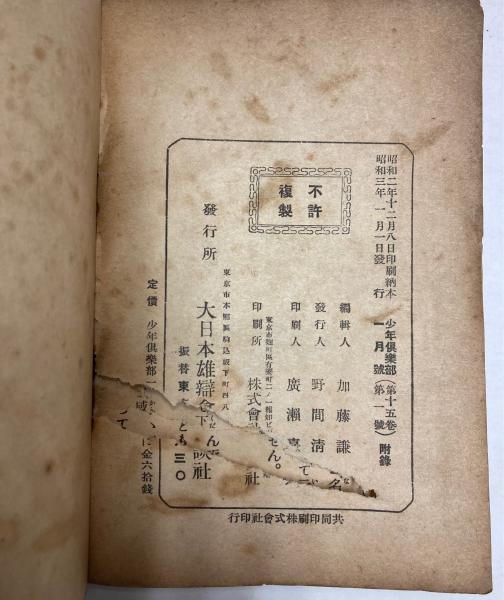 昭和二年十二月八日印刷納本
昭和三年一月一日發行
少年俱樂部(第十五卷)附錄
一月號(第一號)
不許
複製
編輯人 加藤謙
發行人 野間清
印刷人 廣瀨
東京市麴町區有樂町二ノ一報知ビ
印刷所 株式會社
東京市本鄕區駒込坂下町四八
發行所 大日本雄辯會 談社
振替東 三〇
定價 少年俱樂部一 金六拾錢
共同印刷株式會社印行